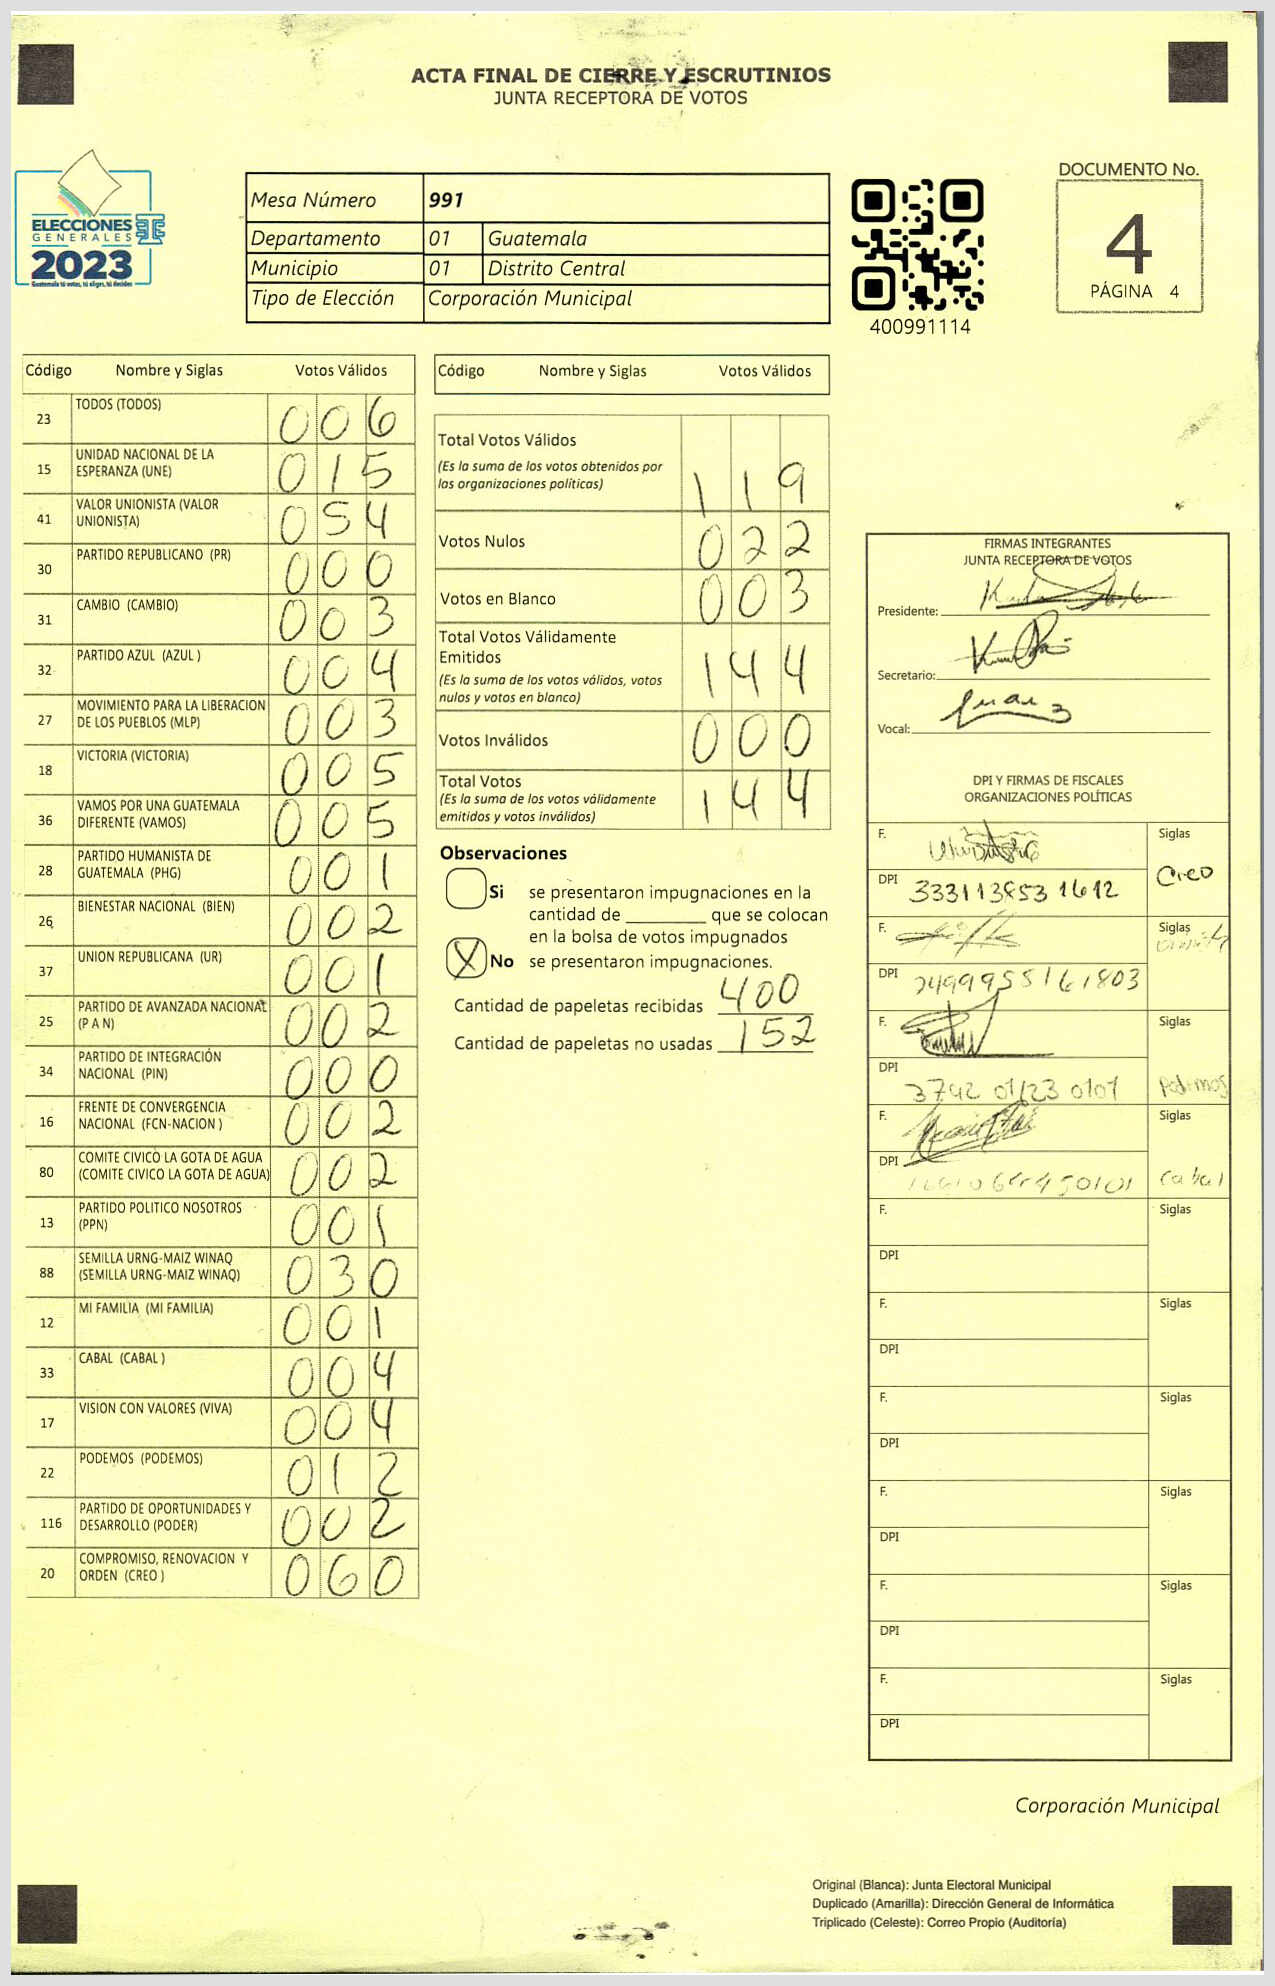 ACTA FINAL DE CIERRE Y ESCRUTINIOS
JUNTA RECEPTORA DE VOTOS
ELECCIONES
GENERALES
2023
Guatemala tú votas, tú eliges, tú decides
Mesa Número 991
Departamento 01 Guatemala
Municipio 01 Distrito Central
Tipo de Elección Corporación Municipal
400991114
DOCUMENTO No.
4
PÁGINA 4
Código Nombre y Siglas Votos Válidos
23 TODOS (TODOS) 006
15 UNIDAD NACIONAL DE LA
ESPERANZA (UNE) 015
41 VALOR UNIONISTA (VALOR
UNIONISTA) 054
30 PARTIDO REPUBLICANO (PR) 000
31 CAMBIO (CAMBIO) 003
32 PARTIDO AZUL (AZUL ) 004
27 MOVIMIENTO PARA LA LIBERACION
DE LOS PUEBLOS (MLP) 003
18 VICTORIA (VICTORIA) 005
36 VAMOS POR UNA GUATEMALA
DIFERENTE (VAMOS) 005
28 PARTIDO HUMANISTA DE
GUATEMALA (PHG) 001
26 BIENESTAR NACIONAL (BIEN) 002
37 UNION REPUBLICANA (UR) 001
25 PARTIDO DE AVANZADA NACIONAL
(P A N) 002
34 PARTIDO DE INTEGRACIÓN
NACIONAL (PIN) 000
16 FRENTE DE CONVERGENCIA
NACIONAL (FCN-NACION ) 002
80 COMITE CIVICO LA GOTA DE AGUA
(COMITE CIVICO LA GOTA DE AGUA) 002
13 PARTIDO POLITICO NOSOTROS
(PPN) 001
88 SEMILLA URNG-MAIZ WINAQ
(SEMILLA URNG-MAIZ WINAQ) 030
12 MI FAMILIA (MI FAMILIA) 001
33 CABAL (CABAL ) 004
17 VISION CON VALORES (VIVA) 004
22 PODEMOS (PODEMOS) 012
116 PARTIDO DE OPORTUNIDADES Y
DESARROLLO (PODER) 002
20 COMPROMISO, RENOVACION Y
ORDEN (CREO ) 060
Código Nombre y Siglas Votos Válidos
Total Votos Válidos
(Es la suma de los votos obtenidos por
las organizaciones políticas) 119
Votos Nulos 022
Votos en Blanco 003
Total Votos Válidamente
Emitidos
(Es la suma de los votos válidos, votos
nulos y votos en blanco) 144
Votos Inválidos 000
Total Votos
(Es la suma de los votos válidamente
emitidos y votos inválidos) 144
Observaciones
Si se presentaron impugnaciones en la
cantidad de ________ que se colocan
en la bolsa de votos impugnados
X No se presentaron impugnaciones.
Cantidad de papeletas recibidas 400
Cantidad de papeletas no usadas 152
FIRMAS INTEGRANTES
JUNTA RECEPTORA DE VOTOS
Presidente:
Secretario:
Vocal:
DPI Y FIRMAS DE FISCALES
ORGANIZACIONES POLÍTICAS
F. Siglas
Creo
DPI 333113853 1612
F. Siglas
DPI 2499955161803
F. Siglas
DPI 3742 01123 0101 Podemos
F. Siglas
DPI Cabal
F. Siglas
DPI
F. Siglas
DPI
F. Siglas
DPI
F. Siglas
DPI
F. Siglas
DPI
F. Siglas
DPI
Corporación Municipal
Original (Blanca): Junta Electoral Municipal
Duplicado (Amarilla): Dirección General de Informática
Triplicado (Celeste): Correo Propio (Auditoría)